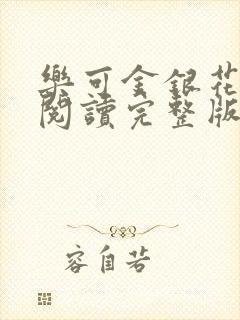 樂可金銀花
閱讀完整版
容自若